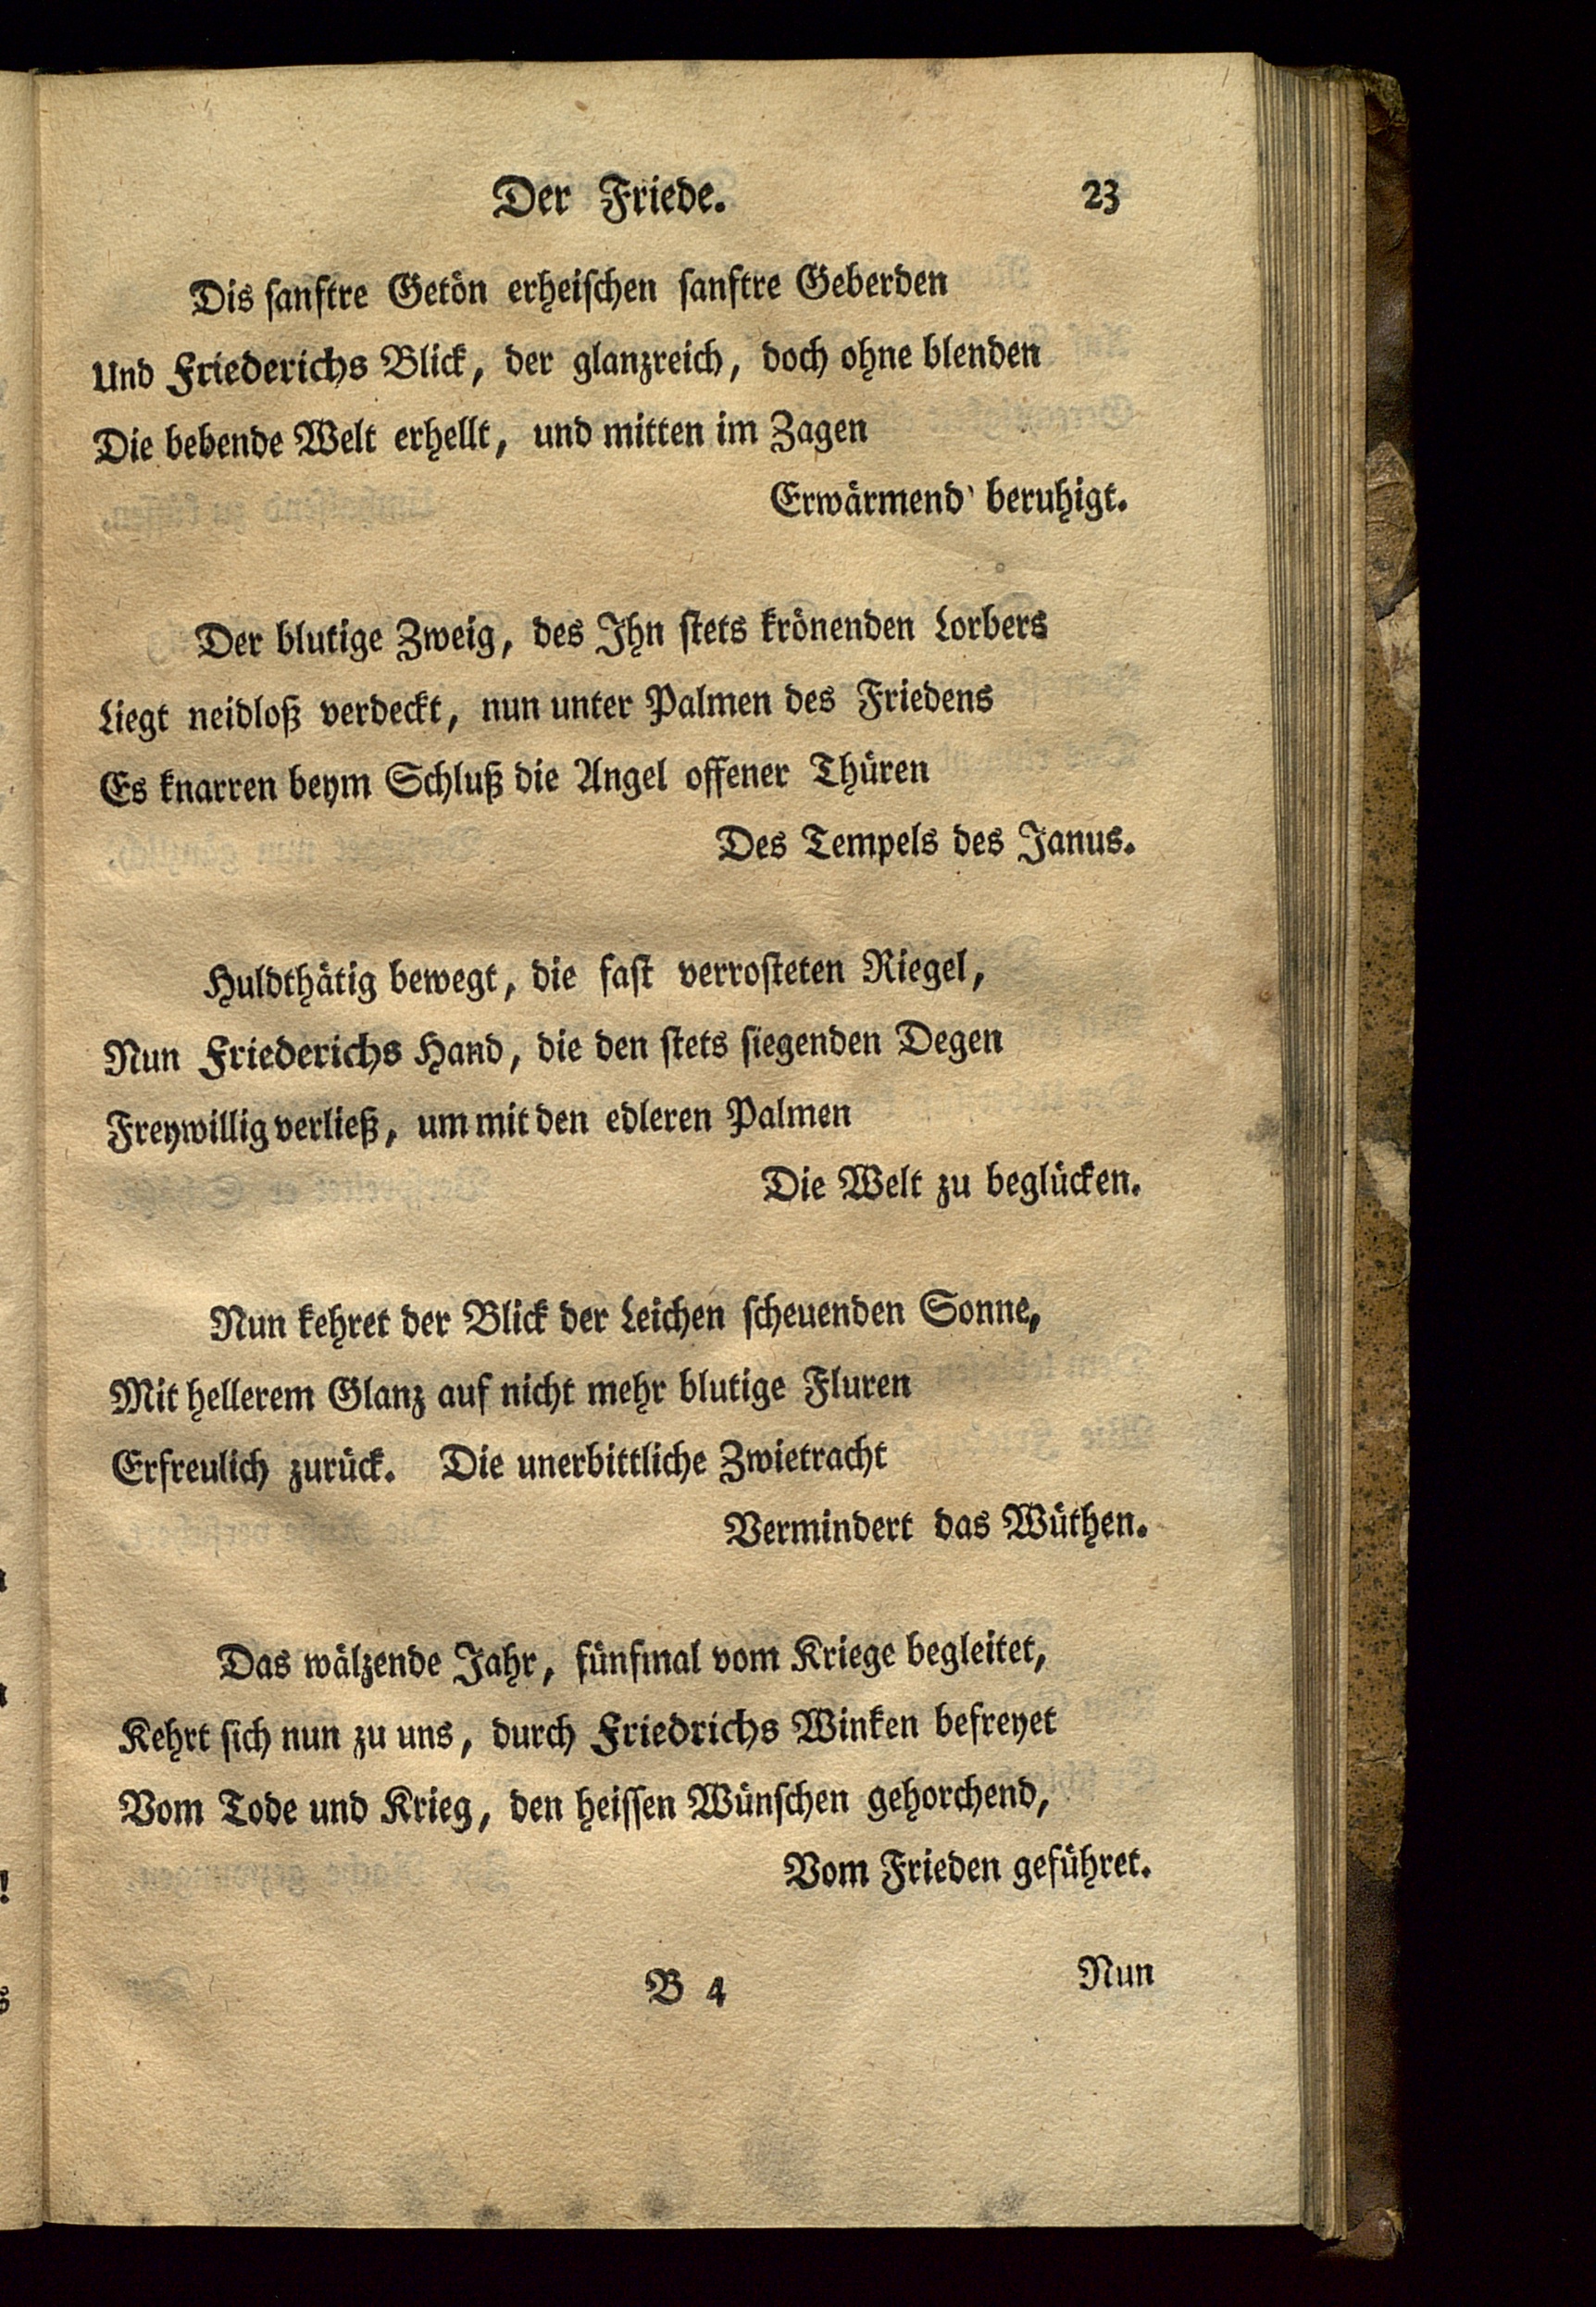 Der Friede. 23
Dis sanftre Getön erheischen sanftre Geberden
Und Friederichs Blick, der glanzreich, doch ohne blenden
Die bebende Welt erhellt, und mitten im Zagen
Erwärmend beruhigt.
Der blutige Zweig, des Ihn stets krönenden Lorbers
Liegt neidloß verdeckt, nun unter Palmen des Friedens
Es knarren beym Schluß die Angel offener Thüren
Des Tempels des Janus.
Huldthätig bewegt, die fast verrosteten Riegel,
Nun Friederichs Hand, die den stets siegenden Degen
Freywillig verließ, um mit den edleren Palmen
Die Welt zu beglücken.
Nun kehret der Blick der Leichen scheuenden Sonne,
Mit hellerem Glanz auf nicht mehr blutige Fluren
Erfreulich zurück. Die unerbittliche Zwietracht
Vermindert das Wüthen.
Das wälzende Jahr, fünfmal vom Kriege begleitet,
Kehrt sich nun zu uns, durch Friedrichs Winken befreyet
Vom Tode und Krieg, den heissen Wünschen gehorchend,
Vom Frieden geführet.
B 4 Nun